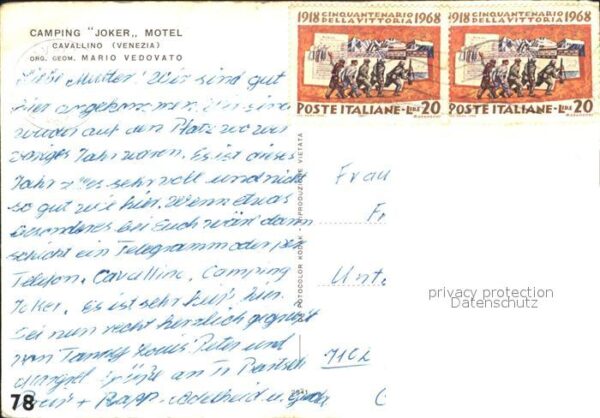 CAMPING "JOKER„ MOTEL
CAVALLINO (VENEZIA)
ORG. GEOM. MARIO VEDOVATO
1918 CINQUANTENARIO DELLA VITTORIA 1968
POSTE ITALIANE - LIRE 20
1918 CINQUANTENARIO DELLA VITTORIA 1968
POSTE ITALIANE - LIRE 20
Liebe Mutter! Wir sind gut
hier angekommen. Wir sind
wieder auf den Platz wo wir
voriges Jahr waren. Es ist dieses
Jahr sehr voll und nicht
so gut wie hier. Wenn etwas
besonderes bei Euch wär dann
schickt ein Telegramm oder per
Telefon. Cavallino, Camping
Joker. Es ist sehr heiß hier.
Sei nun recht herzlich gegrüßt
von Tanny Louis Peter und
Margret Grüße an
Rapp Adelheid u.
FOTOCOLOR KODAK - RIPRODUZIONE VIETATA
Frau
Fr
Unt
7102
privacy protection
Datenschutz
78